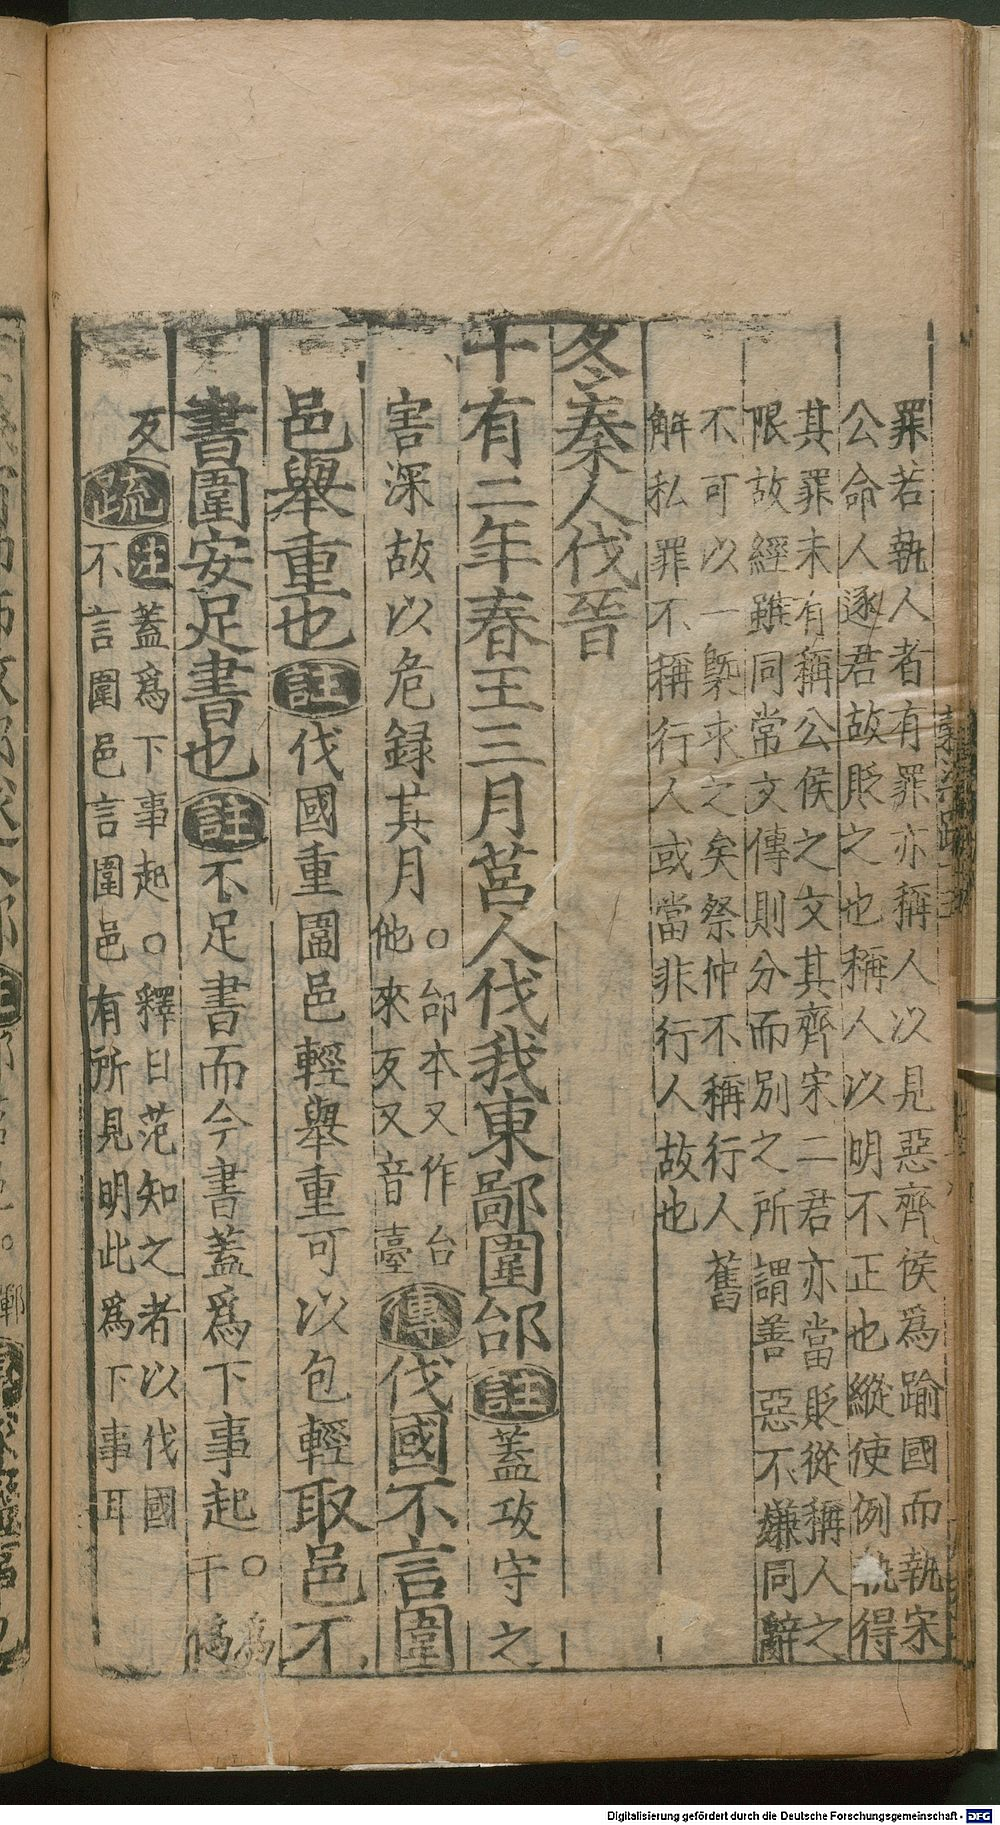 罪若執人者有罪亦稱人以見惡齊侯為踰國而執宋
公命人逐君故貶之也稱人以明不正也縱使例執得
其罪未有稱公侯之文其齊宋二君亦當貶從稱人之
限故經雖同常文傳則分而別之所謂善惡不嫌同辭
不可以一槩求之矣祭仲不稱行人舊
解私罪不稱行人或當非行人故也
冬秦人伐晉
十有二年春王三月莒人伐我東鄙圍邰註蓋攻守之
害深故以危録其月
○邰本又作台
他來反又音臺
傳伐國不言圍
邑舉重也註伐國重圍邑輕舉重可以包輕取邑不
書圍安足書也註不足書而今書蓋爲下事起
○爲
于僞
反
疏
注蓋爲下事起○釋曰范知之者以伐國
不言圍邑言圍邑有所見明此爲下事耳
Digitalisierung gefördert durch die Deutsche Forschungsgemeinschaft - DFG